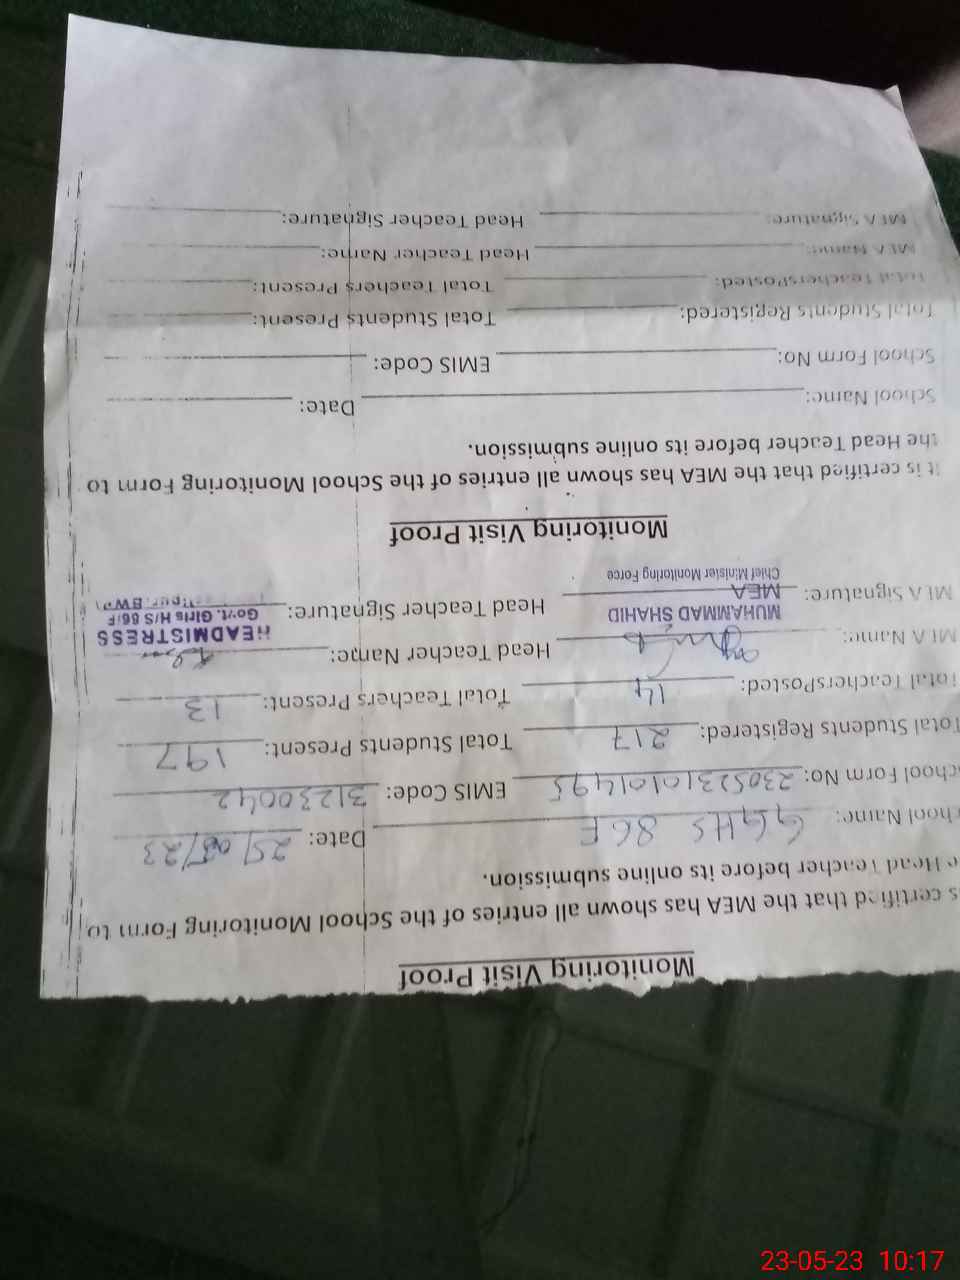 Monitoring Visit Proof
s certified that the MEA has shown all entries of the School Monitoring Form to
e Head Teacher before its online submission.
chool Name: GGHS 86F Date: 25/05/23
chool Form No: 23052310101495 EMIS Code: 31230042
Total Students Registered: 217 Total Students Present: 197
Total TeachersPosted: 14 Total Teachers Present: 13
MEA Name: Head Teacher Name:
MUHAMMAD SHAHID HEADMISTRESS
MEA Signature: MEA Head Teacher Signature: Govt. Girls H/S 86/F
Chief Minister Monitoring Force
Monitoring Visit Proof
It is certified that the MEA has shown all entries of the School Monitoring Form to
the Head Teacher before its online submission.
School Name: Date:
School Form No: EMIS Code:
Total Students Registered: Total Students Present:
Total TeachersPosted: Total Teachers Present:
MEA Name: Head Teacher Name:
MEA Signature: Head Teacher Signature:
23-05-23 10:17